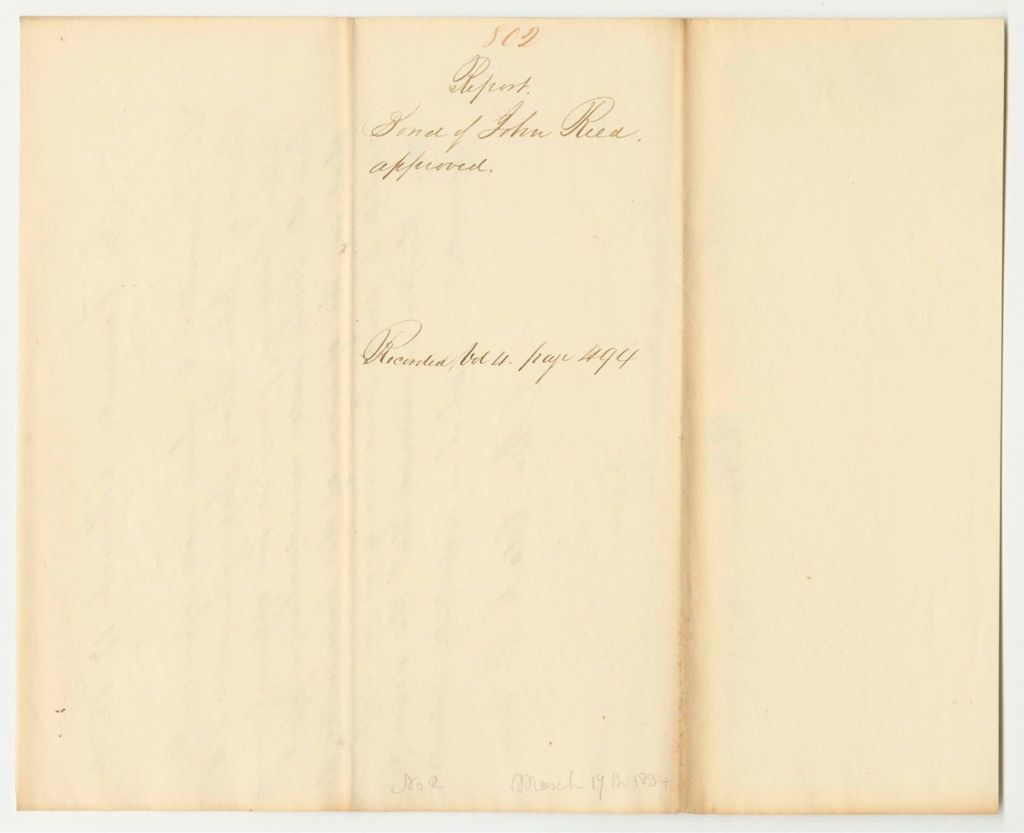 802
Report.
Bond of John Reed.
approved.
Recorded, Vol 4. page 494
No 2 March 19th 1834